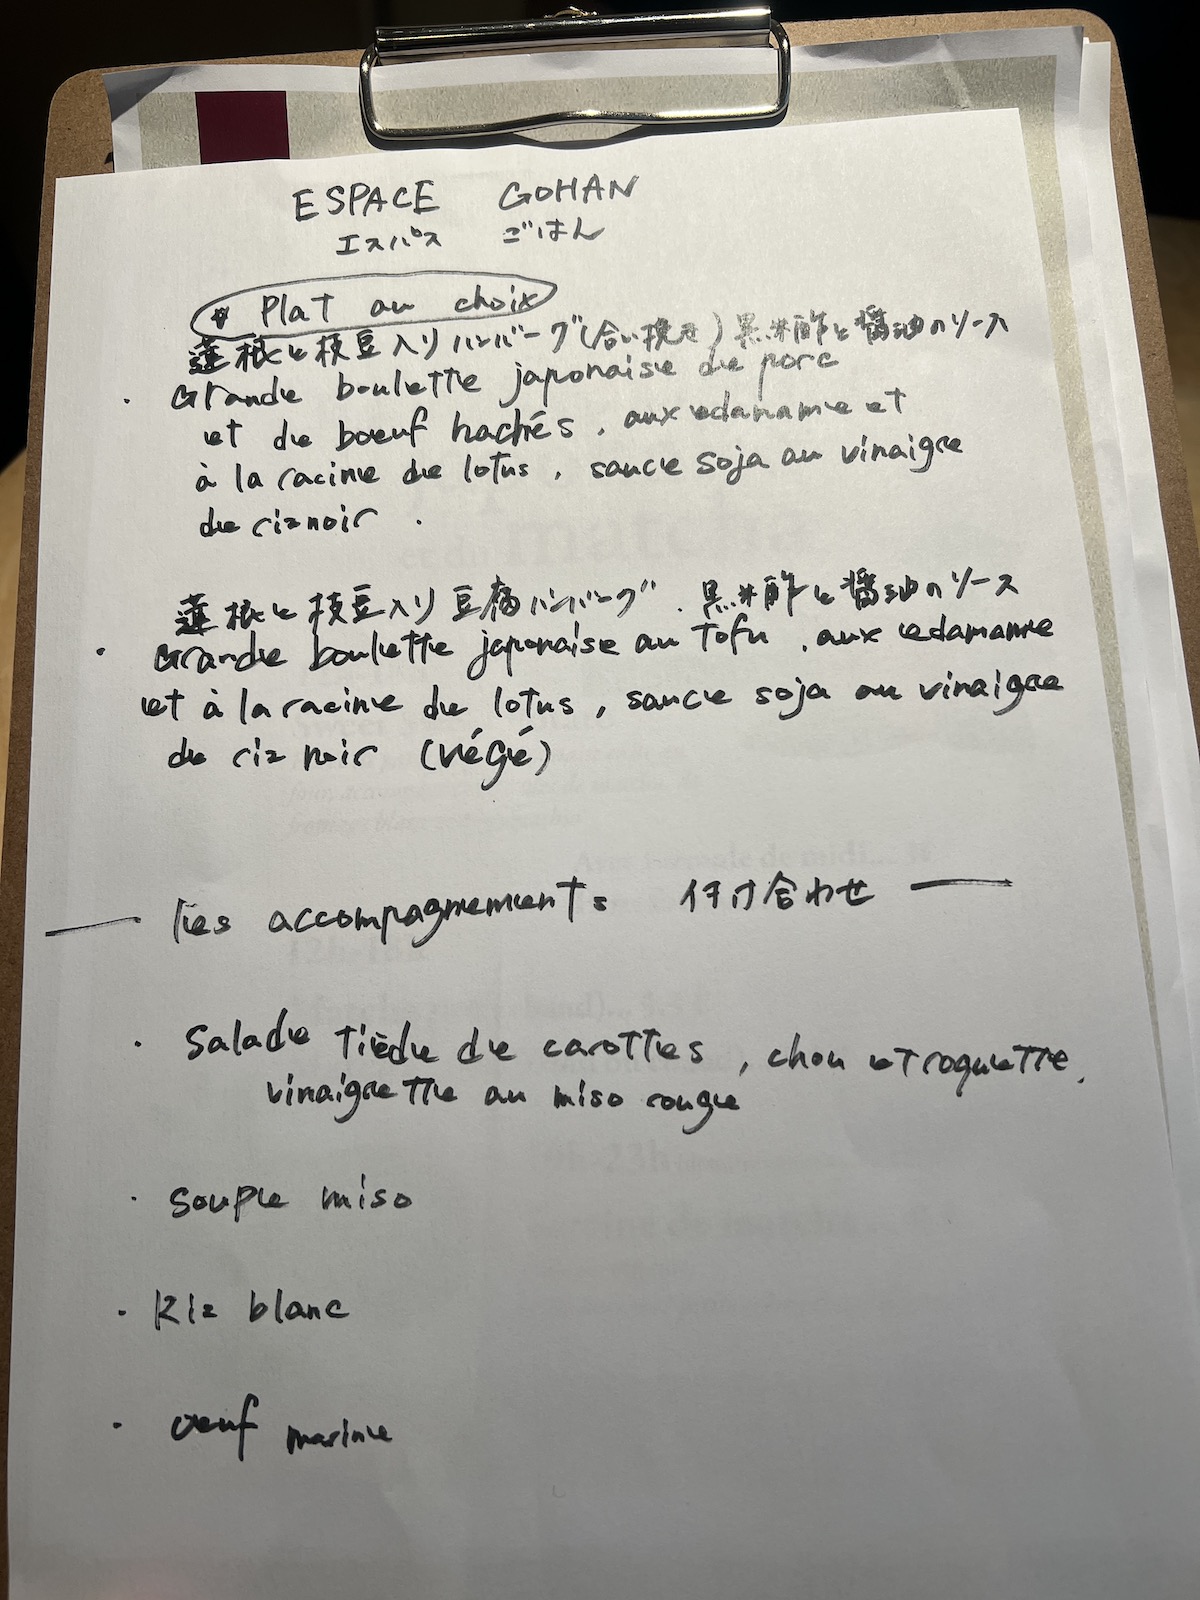 ESPACE GOHAN
エスパス ごはん
Plat au choix
蓮根と枝豆入りハンバーグ(合い挽き)黒米酢と醤油のソース
・ Grande boulette japonaise de porc
et de boeuf hachés, aux edamame et
à la racine de lotus, sauce soja au vinaigre
de riz noir.
蓮根と枝豆入り豆腐ハンバーグ、黒米酢と醤油のソース
・ Grande boulette japonaise au Tofu, aux edamame
et à la racine de lotus, sauce soja au vinaigre
de riz noir (végé)
— les accompagnements 付け合わせ —
・ Salade tiède de carottes, chou et roquette,
vinaigrette au miso rouge
・ Soupe miso
・ Riz blanc
・ oeuf marine